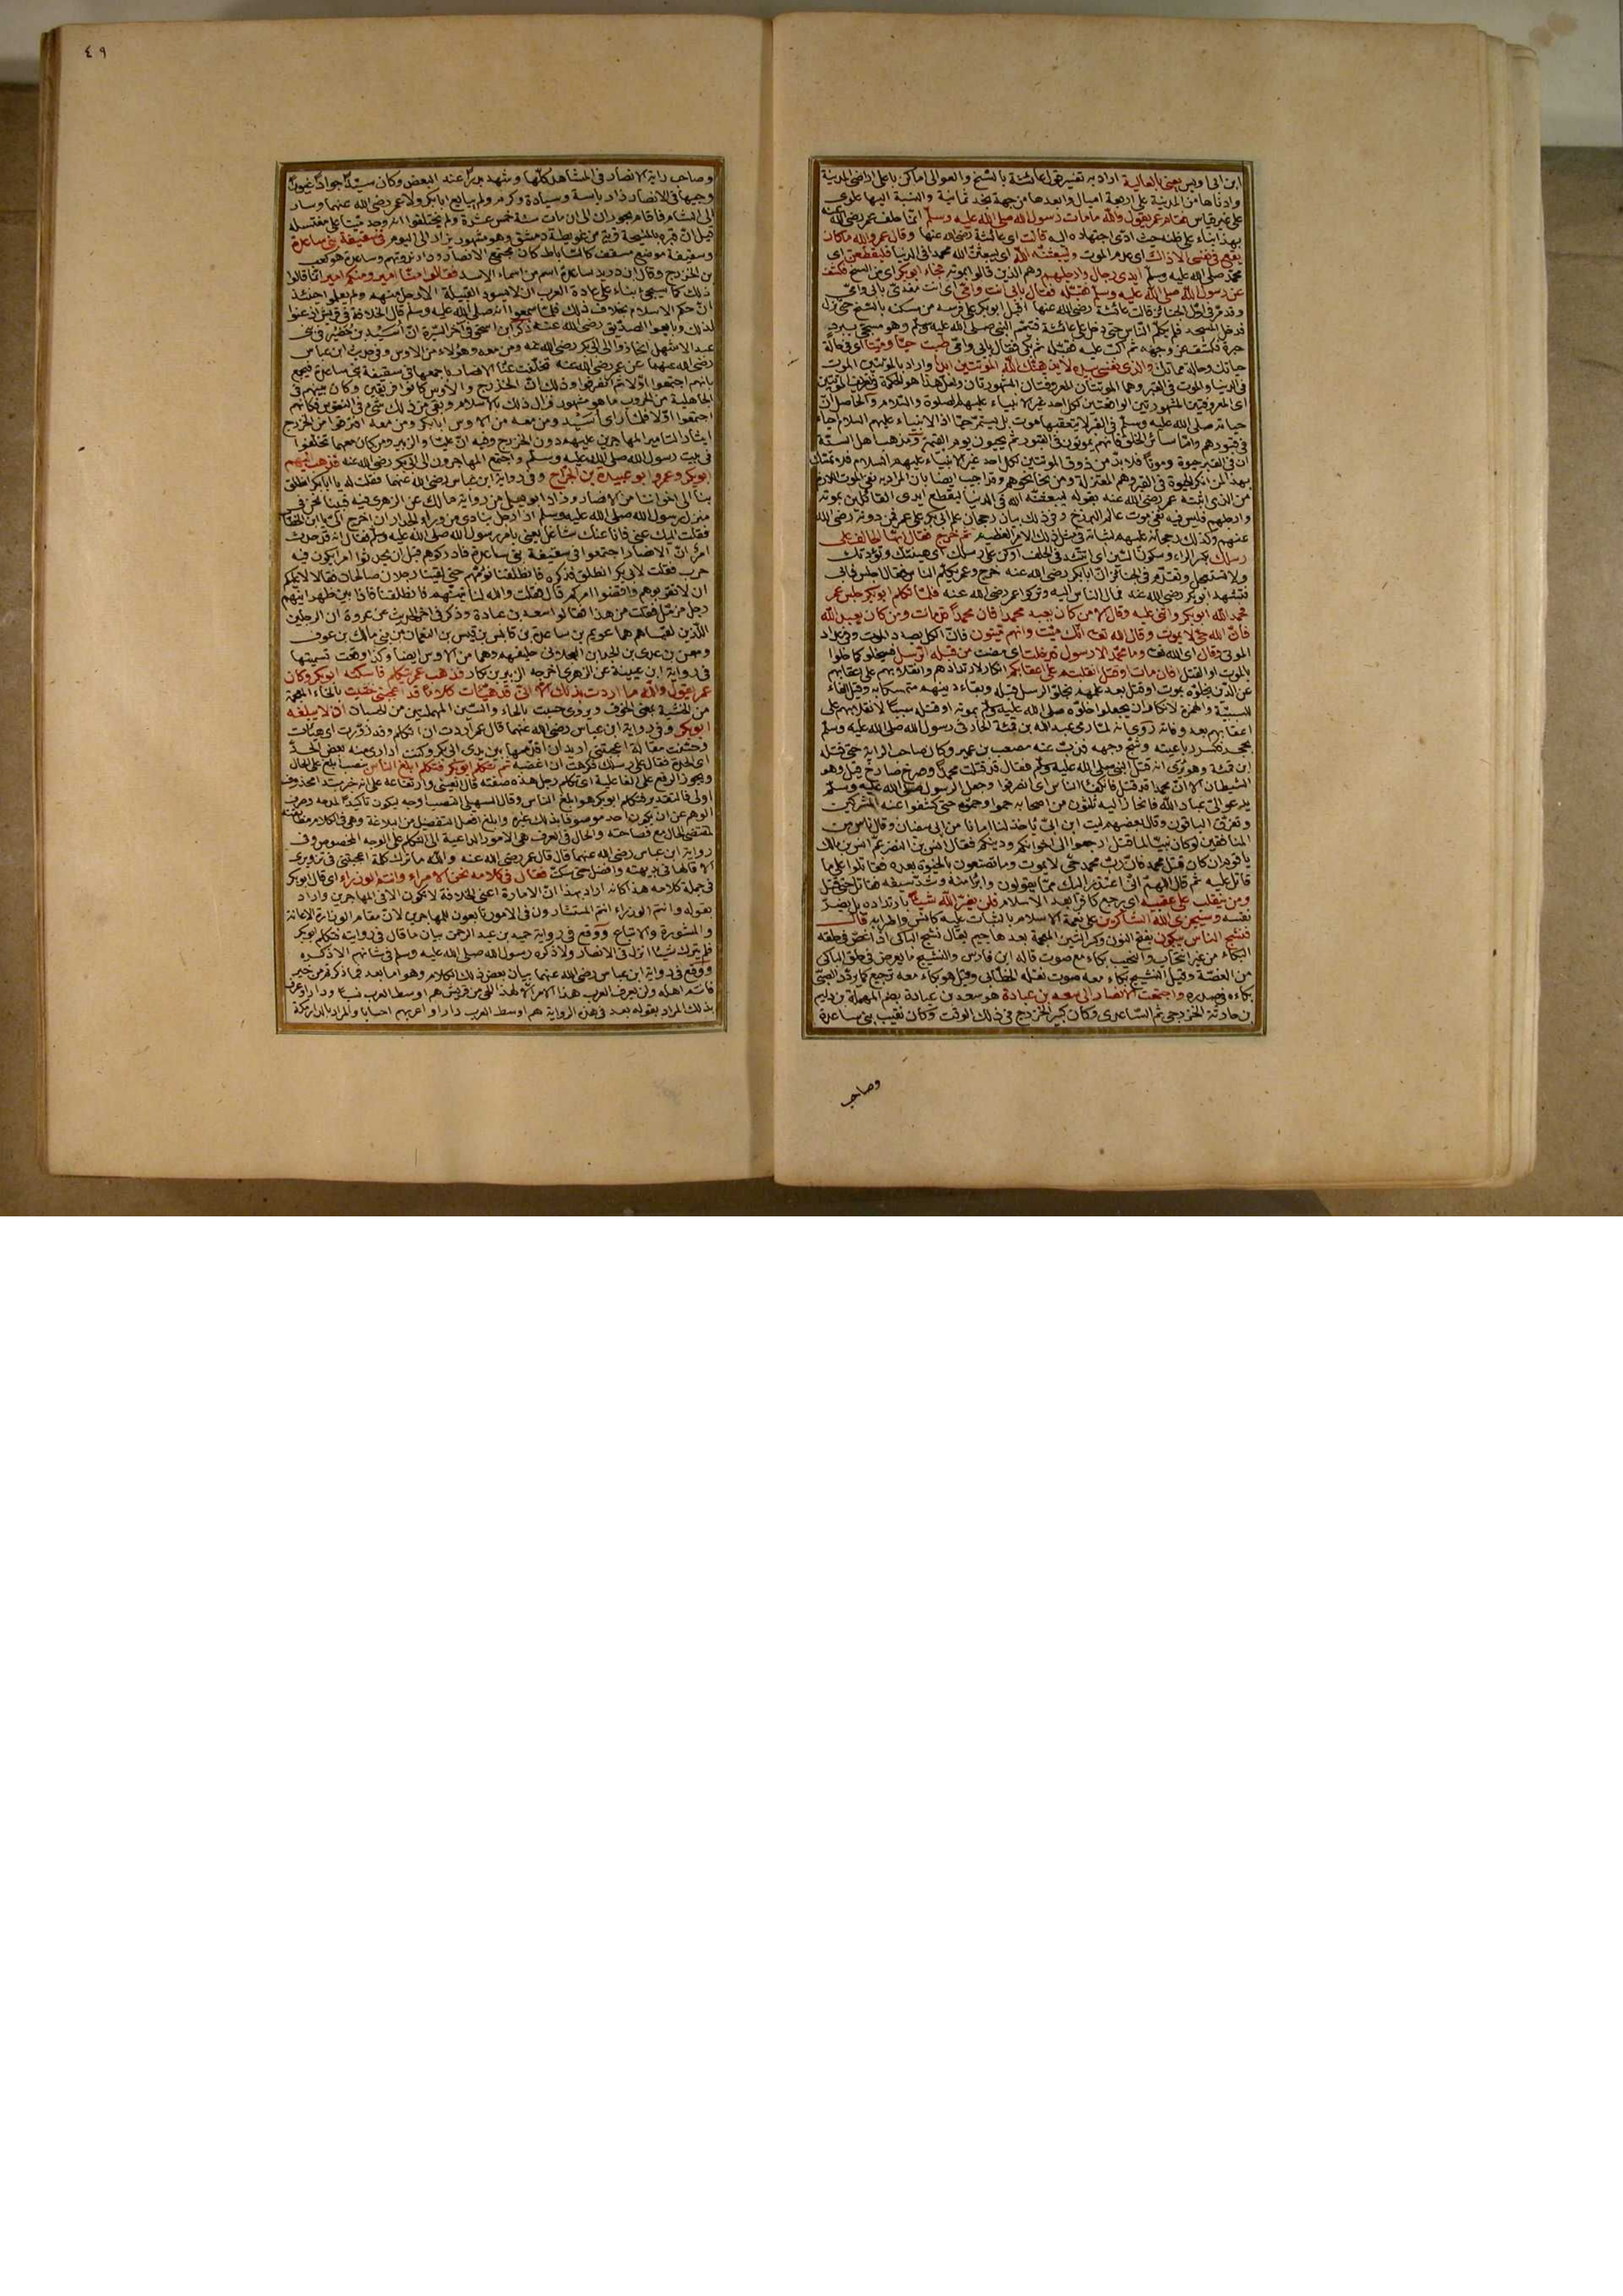 ابن ابى اويس يعنى بالعالية اراد به تفسير قول عائشة بالسنح والعوالى اماكن باعلى اراضى المدينة
وادناها من المدينة على اربعة اميال وابعدها من جهة نجد ثمانية والنسبة اليها علوى
على غير قياس فقام عمر يقول والله مامات رسول الله صلى الله عليه وسلم انما حلف عمر رضى الله عنه
بهذا بناء على ظنه حيث ادى اجتهاده اليه قالت اى عائشة رضى الله عنها وقال عمر والله ماكان
يقع فى نفسى الا ذاك اى عدم الموت وليبعثنه الله اى ليبعثن الله محمدا فى الدنيا فليقطعن اى
محمد صلى الله عليه وسلم ايدى رجال وارجلهم وهم الذين قالوا بموته فجاء ابوبكر اى من السنح فكشف
عن رسول الله صلى الله عليه وسلم فقبله فقال بابى انت وامى اى انت مفدى بابى وامى
وقد مر فى اول الجنائز قالت عائشة رضى الله عنها اقبل ابوبكر على فرسه من مسكنه بالسنح حتى نزل
فدخل المسجد فلم يكلم الناس حتى دخل على عائشة فتيمم النبى صلى الله عليه وسلم وهو مسجى ببرد
حبرة فكشف عن وجهه ثم اكب عليه فقبله ثم بكى فقال بابى وامى طبت حيا وميتا اى فى حالة
حياتك وحالة مماتك والذى نفسى بيده لا يذيقنك الله الموتتين ابدا واراد بالموتتين الموت
فى الدنيا والموت فى القبر وهما الموتتان المعروفتان المشهورتان
اى المعروفتين المشهورتين الواقعتين لكل احد غير الانبياء عليهم الصلوة والسلام والحاصل ان
حياته صلى الله عليه وسلم فى القبر لا يتعقبها موت بل يستمر حيا
فى قبورهم واما سائر الخلق فانهم يموتون فى القبور ثم يحيون يوم القيمة ومذهب اهل السنة
ان فى القبر حيوة وموتا فلا بد من ذوق الموتتين لكل احد غير الانبياء عليهم السلام
بهذا من انكر الحيوة فى القبر وهم المعتزلة ومن نحا نحوهم وقد اجيب ايضا بان المراد به نفى الموت
من الذى اثبته عمر رضى الله عنه بقوله ليبعثنه الله فى الدنيا ليقطع ايدى القائلين بموته
وارجلهم فليس فيه نفى موت عالم البرزخ وفى ذلك بيان رجحان علم ابى بكر على عمر فمن دونه رضى الله
عنهم وكذلك رجحانه عليهم لثباته فى مثل ذلك الامر العظيم ثم خرج فقال ايها الحالف على
رسلك بكسر الراء وسكون السين اى اتئد فى الحلف او كن على رسلك اى هينتك وتؤدتك
ولا تستعجل وتقدم فى الجنائز ان ابابكر رضى الله عنه خرج وعمر يكلم الناس فقال اجلس فابى
فتشهد ابوبكر رضى الله عنه فمال الناس اليه وتركوا عمر رضى الله عنه فلما تكلم ابوبكر جلس عمر
فحمد الله ابوبكر واثنى عليه وقال الا من كان يعبد محمدا فان محمدا قد مات ومن كان يعبد الله
فان الله حى لا يموت وقال الله تعالى انك ميت وانهم ميتون فان الكل بصدد الموت وفى عداد
الموتى وقال اى الله تعالى وما محمد الا رسول قد خلت اى مضت من قبله الرسل فسيخلو كما خلوا
بالموت او القتل افان مات او قتل انقلبتم على اعقابكم انكار لارتدادهم وانقلابهم على اعقابهم
عن الدين بخلوه بموت او قتل بعد علمهم بخلو الرسل قبله وبقاء دينهم متمسكا به وقيل الفاء
للسببية والهمزة لانكار ان يجعلوا خلوه صلى الله عليه وسلم بموته او قتله سببا لانقلابهم على
اعقابهم بعد وفاته روى انه لما رمى عبد الله بن قمئة الحارثى رسول الله صلى الله عليه وسلم
بحجر فكسر رباعيته وشج وجهه فذب عنه مصعب بن عمير وكان صاحب الراية حتى قتله
ابن قمئة وهو يرى انه قتل النبى صلى الله عليه وسلم فقال قد قتلت محمدا وصرخ صارخ قيل وهو
الشيطان الا ان محمدا قد قتل فانكفأ الناس اى انصرفوا وجعل الرسول صلى الله عليه وسلم
يدعو الى عباد الله فانحاز اليه ثلثون من اصحابه حموه حتى كشفوا عنه المشركين
وتفرق الباقون وقال بعضهم ليت ابن ابى ياخذ لنا امانا من ابى سفيان وقال ناس من
المنافقين لو كان نبيا لما قتل ارجعوا الى اخوانكم ودينكم فقال انس بن النضر عم انس بن مالك
يا قوم ان كان قتل محمد فان رب محمد حى لا يموت وما تصنعون بالحيوة بعده فقاتلوا على ما
قاتل عليه ثم قال اللهم انى اعتذر اليك مما يقولون وابرأ منه وشد بسيفه فقاتل حتى قتل
ومن ينقلب على عقبيه اى يرجع كافرا بعد الاسلام فلن يضر الله شيئا بارتداده بل يضر
نفسه وسيجزى الله الشاكرين على نعمة الاسلام بالثبات عليه كانس واضرابه قالت
فنشج الناس يبكون بفتح النون وكسر الشين المعجمة بعدها جيم يقال نشج الباكى اذا غص فى حلقه
البكاء من غير انتحاب والنحيب بكاء مع صوت قاله ابن فارس والنشيج ما يعرض فى حلق الباكى
من الغصة وقيل النشيج بكاء معه صوت نقله الخطابى وقيل هو بكاء معه ترجيع كما يردد الصبى
بكاءه فى صدره واجتمعت الانصار الى سعد بن عبادة هو سعد بن عبادة بضم المهملة بن دليم
بن حارثة الخزرجى ثم الساعدى وكان كبير الخزرج فى ذلك الوقت وكان نقيب بنى ساعدة
وصاحب
٤٩
وصاحب راية الانصار فى المشاهد كلها وشهد بدرا عند البعض وكان سيدا جوادا غيورا
وجيها فى الانصار ذا رياسة وسيادة وكرم ولم يبايع ابابكر ولا عمر رضى الله عنهما وسار
الى الشام فاقام بحوران الى ان مات سنة خمس عشرة ولم يختلفوا انه وجد ميتا على مغتسله
قيل ان قبره بالمنيحة قرية من غوطة دمشق وهو مشهور يزار الى اليوم فى سقيفة بنى ساعدة
وسقيفة موضع مسقف كالساباط كان مجتمع الانصار ودار ندوتهم وساعدة هو كعب
بن الخزرج وقال ابن دريد ساعدة اسم من اسماء الاسد فقالوا منا امير ومنكم امير انما قالوا
ذلك كما سيجئ بناء على عادة العرب ان لا يسود القبيلة الا رجل منهم ولم يعلموا حينئذ
ان حكم الاسلام بخلاف ذلك فلما سمعوا انه صلى الله عليه وسلم قال الخلافة فى قريش اذعنوا
لذلك وبايعوا الصديق رضى الله عنه ذكر ابن اسحق فى اخر السيرة ان اسيد بن حضير فى بنى
عبد الاشهل انحازوا الى ابى بكر رضى الله عنه ومن معه وهؤلاء من الاوس وفى حديث ابن عباس
رضى الله عنهما عن عمر رضى الله عنه تخلفت عنا الانصار باجمعها فى سقيفة بنى ساعدة فيجمع
بانهم اجتمعوا اولا ثم افترقوا وذلك ان الخزرج والاوس كانوا فريقين وكان بينهم فى
الجاهلية من الحروب ما هو مشهور فزال ذلك بالاسلام وبقى من ذلك شئ فى النفوس فكانهم
اجتمعوا اولا فلما راى اسيد ومن معه من الاوس ابابكر ومن معه افترقوا من الخزرج
ايثارا لتامير المهاجرين عليهم دون الخزرج وفيه ان عليا والزبير ومن كان معهما تخلفوا
فى بيت رسول الله صلى الله عليه وسلم واجتمع المهاجرون الى ابى بكر رضى الله عنه فذهب اليهم
ابوبكر وعمر وابو عبيدة بن الجراح وفى رواية ابن عباس رضى الله عنهما فقلت له يا ابابكر انطلق
بنا الى اخواننا من الانصار وزاد ابو يعلى من رواية مالك عن الزهرى فيه فبينا نحن فى
منزل رسول الله صلى الله عليه وسلم اذا رجل ينادى من وراء الجدار ان اخرج الى يا ابن الخطاب
فقلت اليك عنى فانا عنك مشاغل يعنى بامر رسول الله صلى الله عليه وسلم فقال انه قد حدث
امر ان الانصار اجتمعوا فى سقيفة بنى ساعدة فادركوهم قبل ان يحدثوا امرا يكون فيه
حرب فقلت لابى بكر انطلق فذكره فانطلقنا نؤمهم حتى لقينا رجلان صالحان فقالا لا عليكم
ان لا تقربوهم واقضوا امركم قال فقلت والله لنأتينهم فانطلقنا فاذا بين ظهرانيهم
رجل مزمل فقلت من هذا فقالوا سعد بن عبادة وذكر فى اخر الحديث عن عروة ان الرجلين
اللذين لقياهم هما عويم بن ساعدة بن عابس بن قيس بن النعمان من بنى مالك بن عوف
ومعن بن عدى بن الجد بن العجلان حليفهم وهما من الاوس ايضا وكذا وقعت تسميتها
فى رواية ابن عيينة عن الزهرى اخرجه الزبير بن بكار فذهب عمر يتكلم فاسكته ابوبكر وكان
عمر يقول والله ما اردت بذلك الا انى قد هيأت كلاما قد اعجبنى خشيت بالخاء المعجمة
من الخشية بمعنى الخوف ويروى حسبت بالحاء والسين المهملتين من الحسبان ان لا يبلغه
ابوبكر وفى رواية ابن عباس رضى الله عنهما قال عمر اردت ان اتكلم وقد زورت اى هيأت
وحسنت مقالة اعجبتنى اريد ان اقدمها بين يدى ابى بكر وكنت ادارى منه بعض الحد
اى الحدة فقال على رسلك فكرهت ان اغضبه ثم تكلم ابوبكر فتكلم ابلغ الناس بنصب ابلغ على الحال
ويجوز الرفع على الفاعلية اى تكلم رجل هذه صفته قال العينى وارتفاعه على انه خبر مبتدا محذوف
اولى فالتقدير فتكلم ابوبكر هو ابلغ الناس وقال السهيلى النصب اوجه ليكون تأكيدا لمدحه وصرف
الوهم عن ان يكون احد موصوفا بذلك غيره وابلغ افعل التفضيل من البلاغة وهى فى الكلام مطابقته
لمقتضى الحال مع فصاحته والحال فى العرف هى الامور الداعية الى التكلم على الوجه المخصوص وفى
رواية ابن عباس رضى الله عنهما قال قال عمر رضى الله عنه والله ما ترك كلمة اعجبتنى فى تزويرى
الا قالها فى بديهته وافضل حتى سكت فقال فى كلامه نحن الامراء وانتم الوزراء اى قال ابوبكر
فى جملة كلامه هذا كانه اراد بهذا ان الامارة اعنى الخلافة لا تكون الا فى المهاجرين واراد
بقوله وانتم الوزراء انتم المستشارون فى الامور تابعون للمهاجرين لان مقام الوزارة الاعانة
والمشورة والاتباع ووقع فى رواية حميد بن عبد الرحمن بيان ما قال فى روايته فتكلم ابوبكر
فلم يترك شيئا انزل فى الانصار ولا ذكره رسول الله صلى الله عليه وسلم فى شانهم الا ذكره
ووقع فى رواية ابن عباس رضى الله عنهما بيان بعض ذلك الكلام وهو اما بعد فما ذكرتم من خير
فانتم اهله ولن تعرف العرب هذا الامر الا لهذا الحى من قريش هم اوسط العرب نسبا ودارا وعرف
بذلك المراد بقوله بعد فى هذه الرواية هم اوسط العرب دارا واعربهم احسابا والمراد بالدار مكة